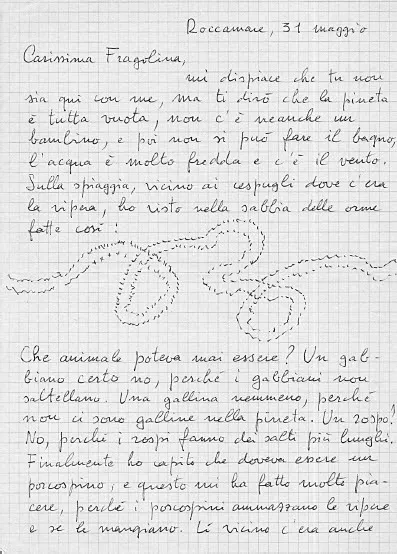 Roccamare, 31 maggio
Carissima Fragolina,
mi dispiace che tu non
sia qui con me, ma ti dirò che la pineta
è tutta vuota, non c'è neanche un
bambino, e poi non si può fare il bagno,
l'acqua è molto fredda e c'è il vento.
Sulla spiaggia, vicino ai cespugli dove c'era
la vipera, ho visto nella sabbia delle orme
fatte così:
Che animale poteva mai essere? Un gab-
biano certo no, perché i gabbiani non
saltellano. Una gallina nemmeno, perché
non ci sono galline nella pineta. Un rospo?
No, perché i rospi fanno dei salti più lunghi.
Finalmente ho capito che doveva essere un
porcospino, e questo mi ha fatto molto pia-
cere, perché i porcospini ammazzano le vipere
e se le mangiano. Lì vicino c'era anche